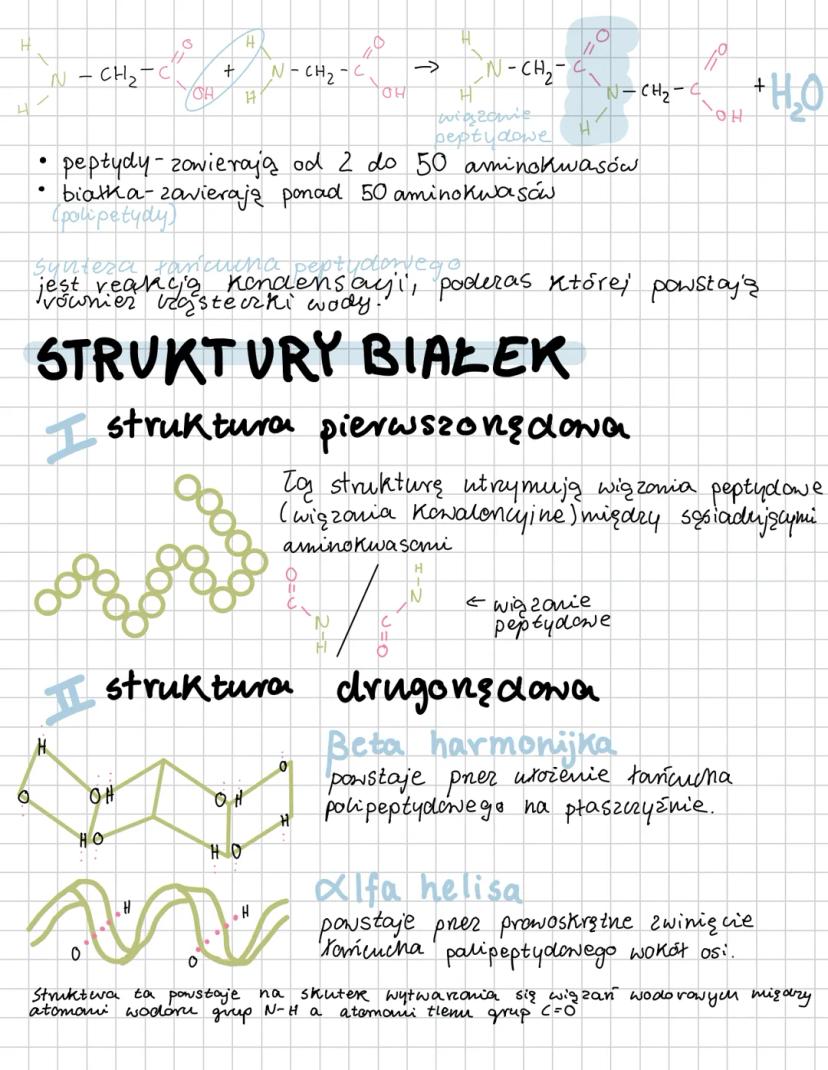 H H O H O H O O
N – CH2 – C OH + N – CH2 – C OH → N – CH2 – C N – CH2 – C OH + H2O
H H H H
wiązanie
peptydowe
• peptydy – zawierają od 2 do 50 aminokwasów
• białka – zawierają ponad 50 aminokwasów
(polipetydy)
synteza łańcucha peptydowego
jest reakcją kondensacji, podczas której powstają
również cząsteczki wody.
STRUKTURY BIAŁEK
I struktura pierwszorzędowa
Tą strukturę utrzymują wiązania peptydowe
(wiązania kowalencyjne) między sąsiadującymi
aminokwasami
O H
C N N
H C O
← wiązanie
peptydowe
II struktura drugorzędowa
Beta harmonijka
powstaje przez ułożenie łańcucha
polipeptydowego na płaszczyźnie.
H
O OH OH O
HO HO H
αlfa helisa
powstaje przez prawoskrętne zwinięcie
łańcucha polipeptydowego wokół osi.
H H
O O
Struktura ta powstaje na skutek wytwarzania się wiązań wodorowych między
atomami wodoru grup N-H a atomami tlenu grup C=O